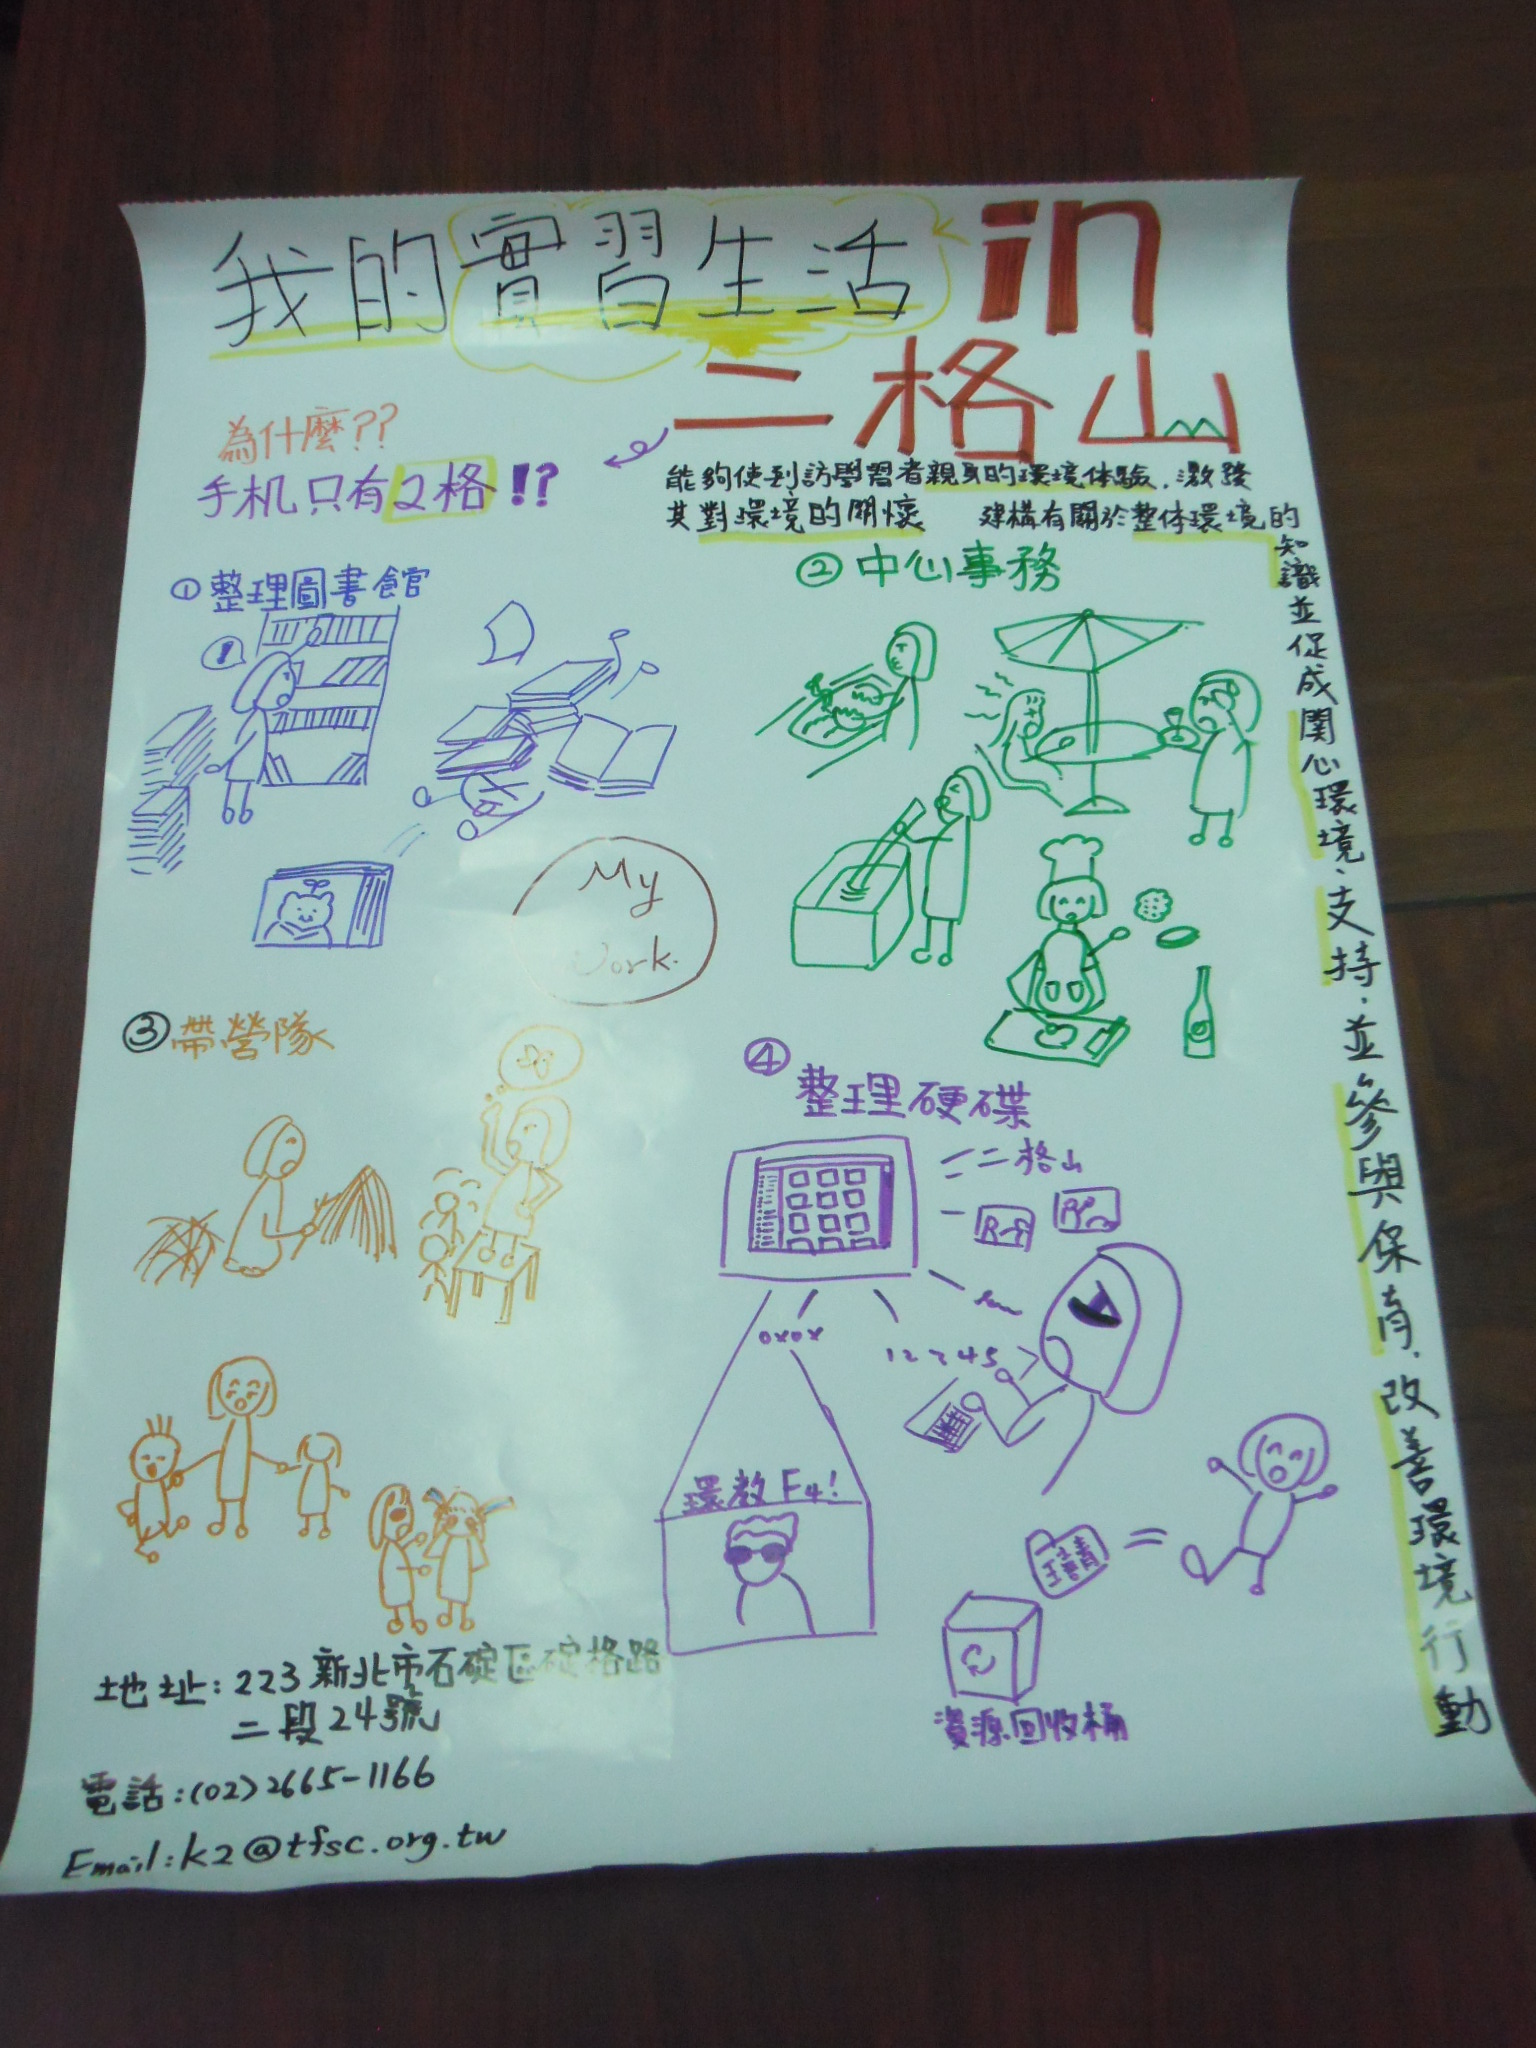 我的實習生活 in
二格山
為什麼??
手机只有2格!?
能夠使到訪學習者親身的環境体驗,激發
其對環境的關懷 建構有關於整体環境的
知識並促成関心環境、支持,並參與保育,改善環境行動
①整理圖書館
!
②中心事務
My
Work.
③帶營隊
④整理硬碟
二格山
oxox
12345
環教F4!
資源回收桶
地址:223新北市石碇區碇格路
二段24號
電話:(02)2665-1166
Email:k2@tfsc.org.tw